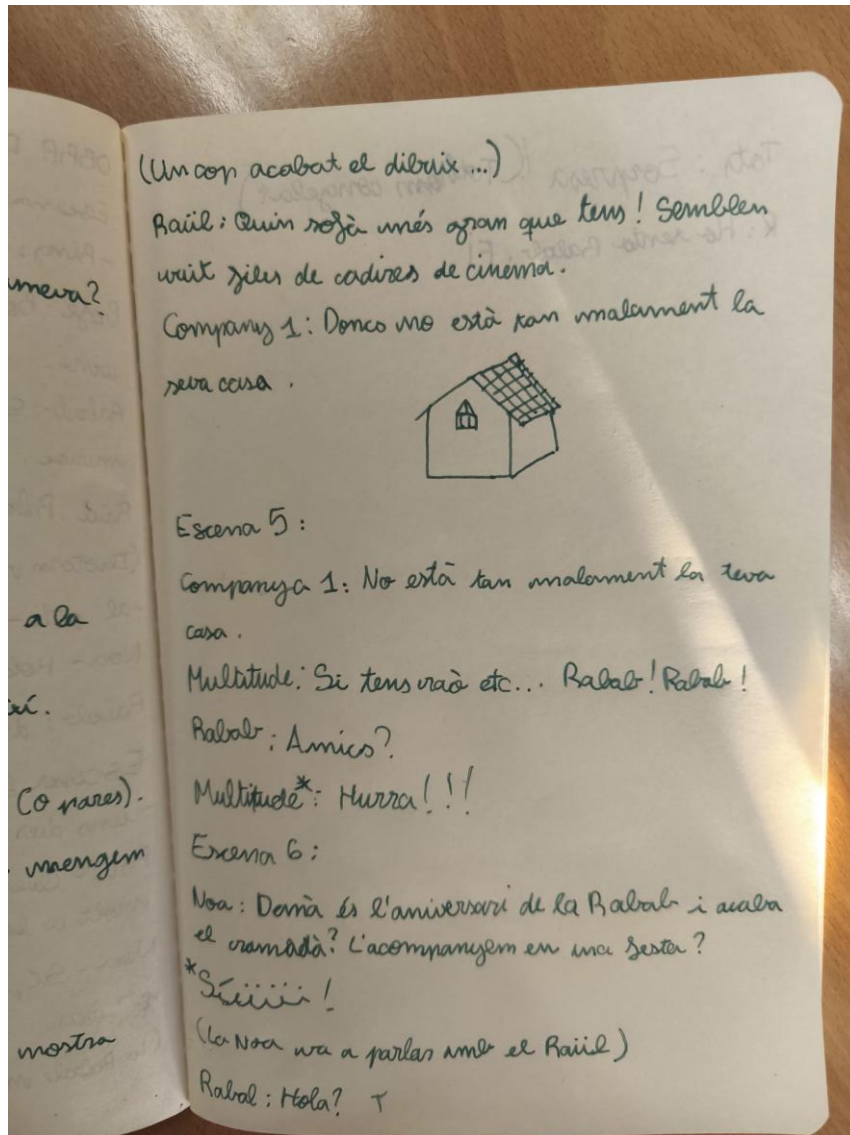 (Un cop acabat el dibuix...)
Raül: Quin sofà més gran que tens! Semblen
vuit files de cadires de cinema.
Company 1: Doncs no està tan malament la
seva casa.
Escena 5:
Companya 1: No està tan malament la teva
casa.
Multitude: Si tens raò etc... Rabab! Rabab!
Rabab: Amics?
Multitude*: Hurra!!!
Escena 6:
Noa: Demà és l'aniversari de la Rabab i acaba
el ramadà? L'acompanyem en una festa?
*Síiiiii!
(La Noa va a parlar amb el Raül)
Rabab: Hola?
meva?
a la
(o pares).
mengem
mostra